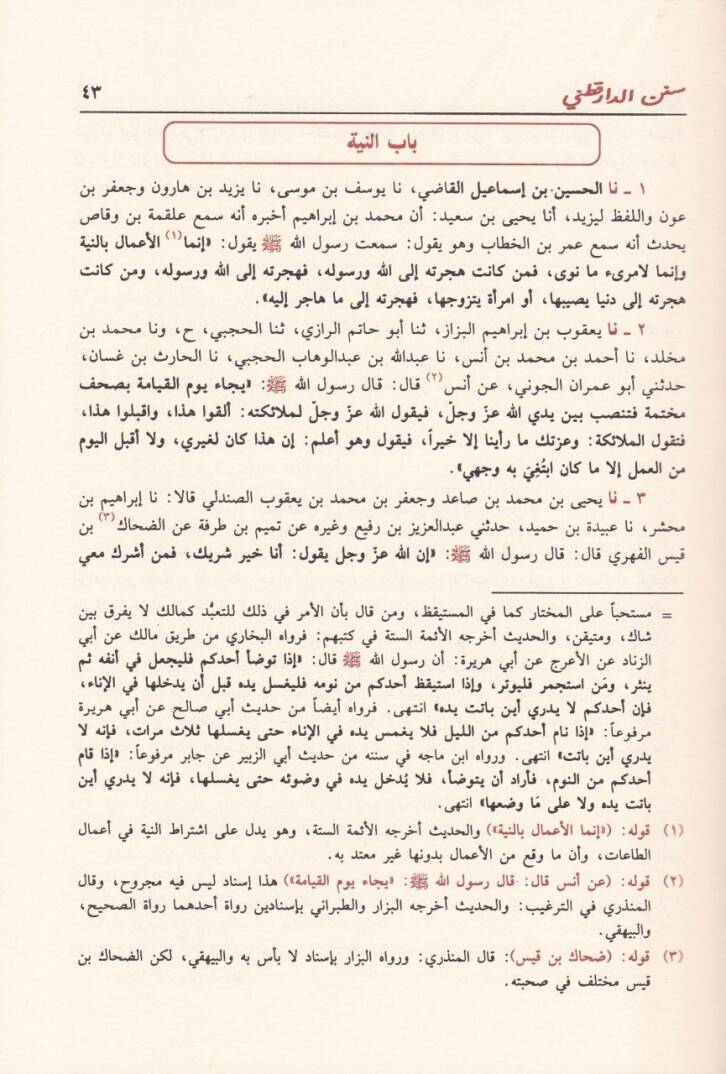 سنن الدارقطني
٤٣
باب النية
١ ـ نا الحسين بن إسماعيل القاضي، نا يوسف بن موسى، نا يزيد بن هارون وجعفر بن
عون واللفظ ليزيد، أنا يحيى بن سعيد: أن محمد بن إبراهيم أخبره أنه سمع علقمة بن وقاص
يحدث أنه سمع عمر بن الخطاب وهو يقول: سمعت رسول الله ﷺ يقول: «إنما(١) الأعمال بالنية
وإنما لامرىء ما نوى، فمن كانت هجرته إلى الله ورسوله، فهجرته إلى الله ورسوله، ومن كانت
هجرته إلى دنيا يصيبها، أو امرأة يتزوجها، فهجرته إلى ما هاجر إليه».
٢ ـ نا يعقوب بن إبراهيم البزاز، ثنا أبو حاتم الرازي، ثنا الحجبي، ح، ونا محمد بن
مخلد، نا أحمد بن محمد بن أنس، نا عبدالله بن عبدالوهاب الحجبي، نا الحارث بن غسان،
حدثني أبو عمران الجوني، عن أنس(٢) قال: قال رسول الله ﷺ: «يجاء يوم القيامة بصحف
مختمة فتنصب بين يدي الله عزّ وجلّ، فيقول الله عزّ وجلّ لملائكته: ألقوا هذا، واقبلوا هذا،
فتقول الملائكة: وعزتك ما رأينا إلا خيراً، فيقول وهو أعلم: إن هذا كان لغيري، ولا أقبل اليوم
من العمل إلا ما كان ابتُغِيَ به وجهي».
٣ ـ نا يحيى بن محمد بن صاعد وجعفر بن محمد بن يعقوب الصندلي قالا: نا إبراهيم بن
محشر، نا عبيدة بن حميد، حدثني عبدالعزيز بن رفيع وغيره عن تميم بن طرفة عن الضحاك(٣) بن
قيس الفهري قال: قال رسول الله ﷺ: «إن الله عزّ وجل يقول: أنا خير شريك، فمن أشرك معي
= مستحباً على المختار كما في المستيقظ، ومن قال بأن الأمر في ذلك للتعبُّد كمالك لا يفرق بين
شاك، ومتيقن، والحديث أخرجه الأئمة الستة في كتبهم: فرواه البخاري من طريق مالك عن أبي
الزناد عن الأعرج عن أبي هريرة: أن رسول الله ﷺ قال: «إذا توضأ أحدكم فليجعل في أنفه ثم
ينثر، ومَن استجمر فليوتر، وإذا استيقظ أحدكم من نومه فليغسل يده قبل أن يدخلها في الإناء،
فإن أحدكم لا يدري أين باتت يده» انتهى. فرواه أيضاً من حديث أبي صالح عن أبي هريرة
مرفوعاً: «إذا نام أحدكم من الليل فلا يغمس يده في الإناء حتى يغسلها ثلاث مرات، فإنه لا
يدري أين باتت» انتهى. ورواه ابن ماجه في سننه من حديث أبي الزبير عن جابر مرفوعاً: «إذا قام
أحدكم من النوم، فأراد أن يتوضأ، فلا يُدخل يده في وضوئه حتى يغسلها، فإنه لا يدري أين
باتت يده ولا على مَا وضعها» انتهى.
(١) قوله: («إنما الأعمال بالنية») والحديث أخرجه الأئمة الستة، وهو يدل على اشتراط النية في أعمال
الطاعات، وأن ما وقع من الأعمال بدونها غير معتد به.
(٢) قوله: (عن أنس قال: قال رسول الله ﷺ: «يجاء يوم القيامة») هذا إسناد ليس فيه مجروح، وقال
المنذري في الترغيب: والحديث أخرجه البزار والطبراني بإسنادين رواة أحدهما رواة الصحيح،
والبيهقي.
(٣) قوله: (ضحاك بن قيس): قال المنذري: ورواه البزار بإسناد لا بأس به والبيهقي، لكن الضحاك بن
قيس مختلف في صحبته.